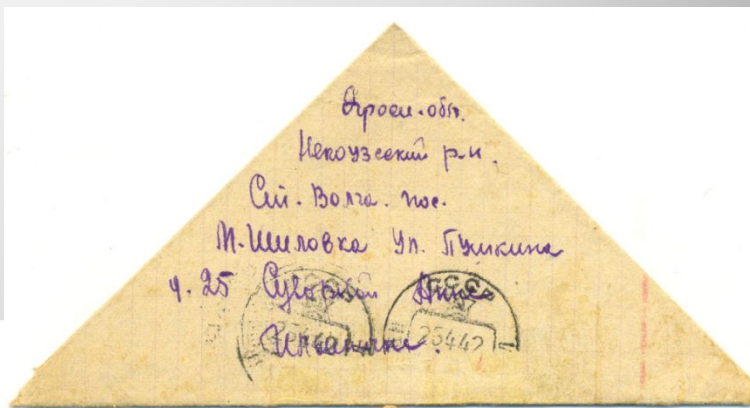 Яросл. обл.
Некоузский р-н.
Ст. Волга. пос.
М-Шиловка Ул. Пушкина
25 Суворовой Анне
Ивановне.
СССР
25442